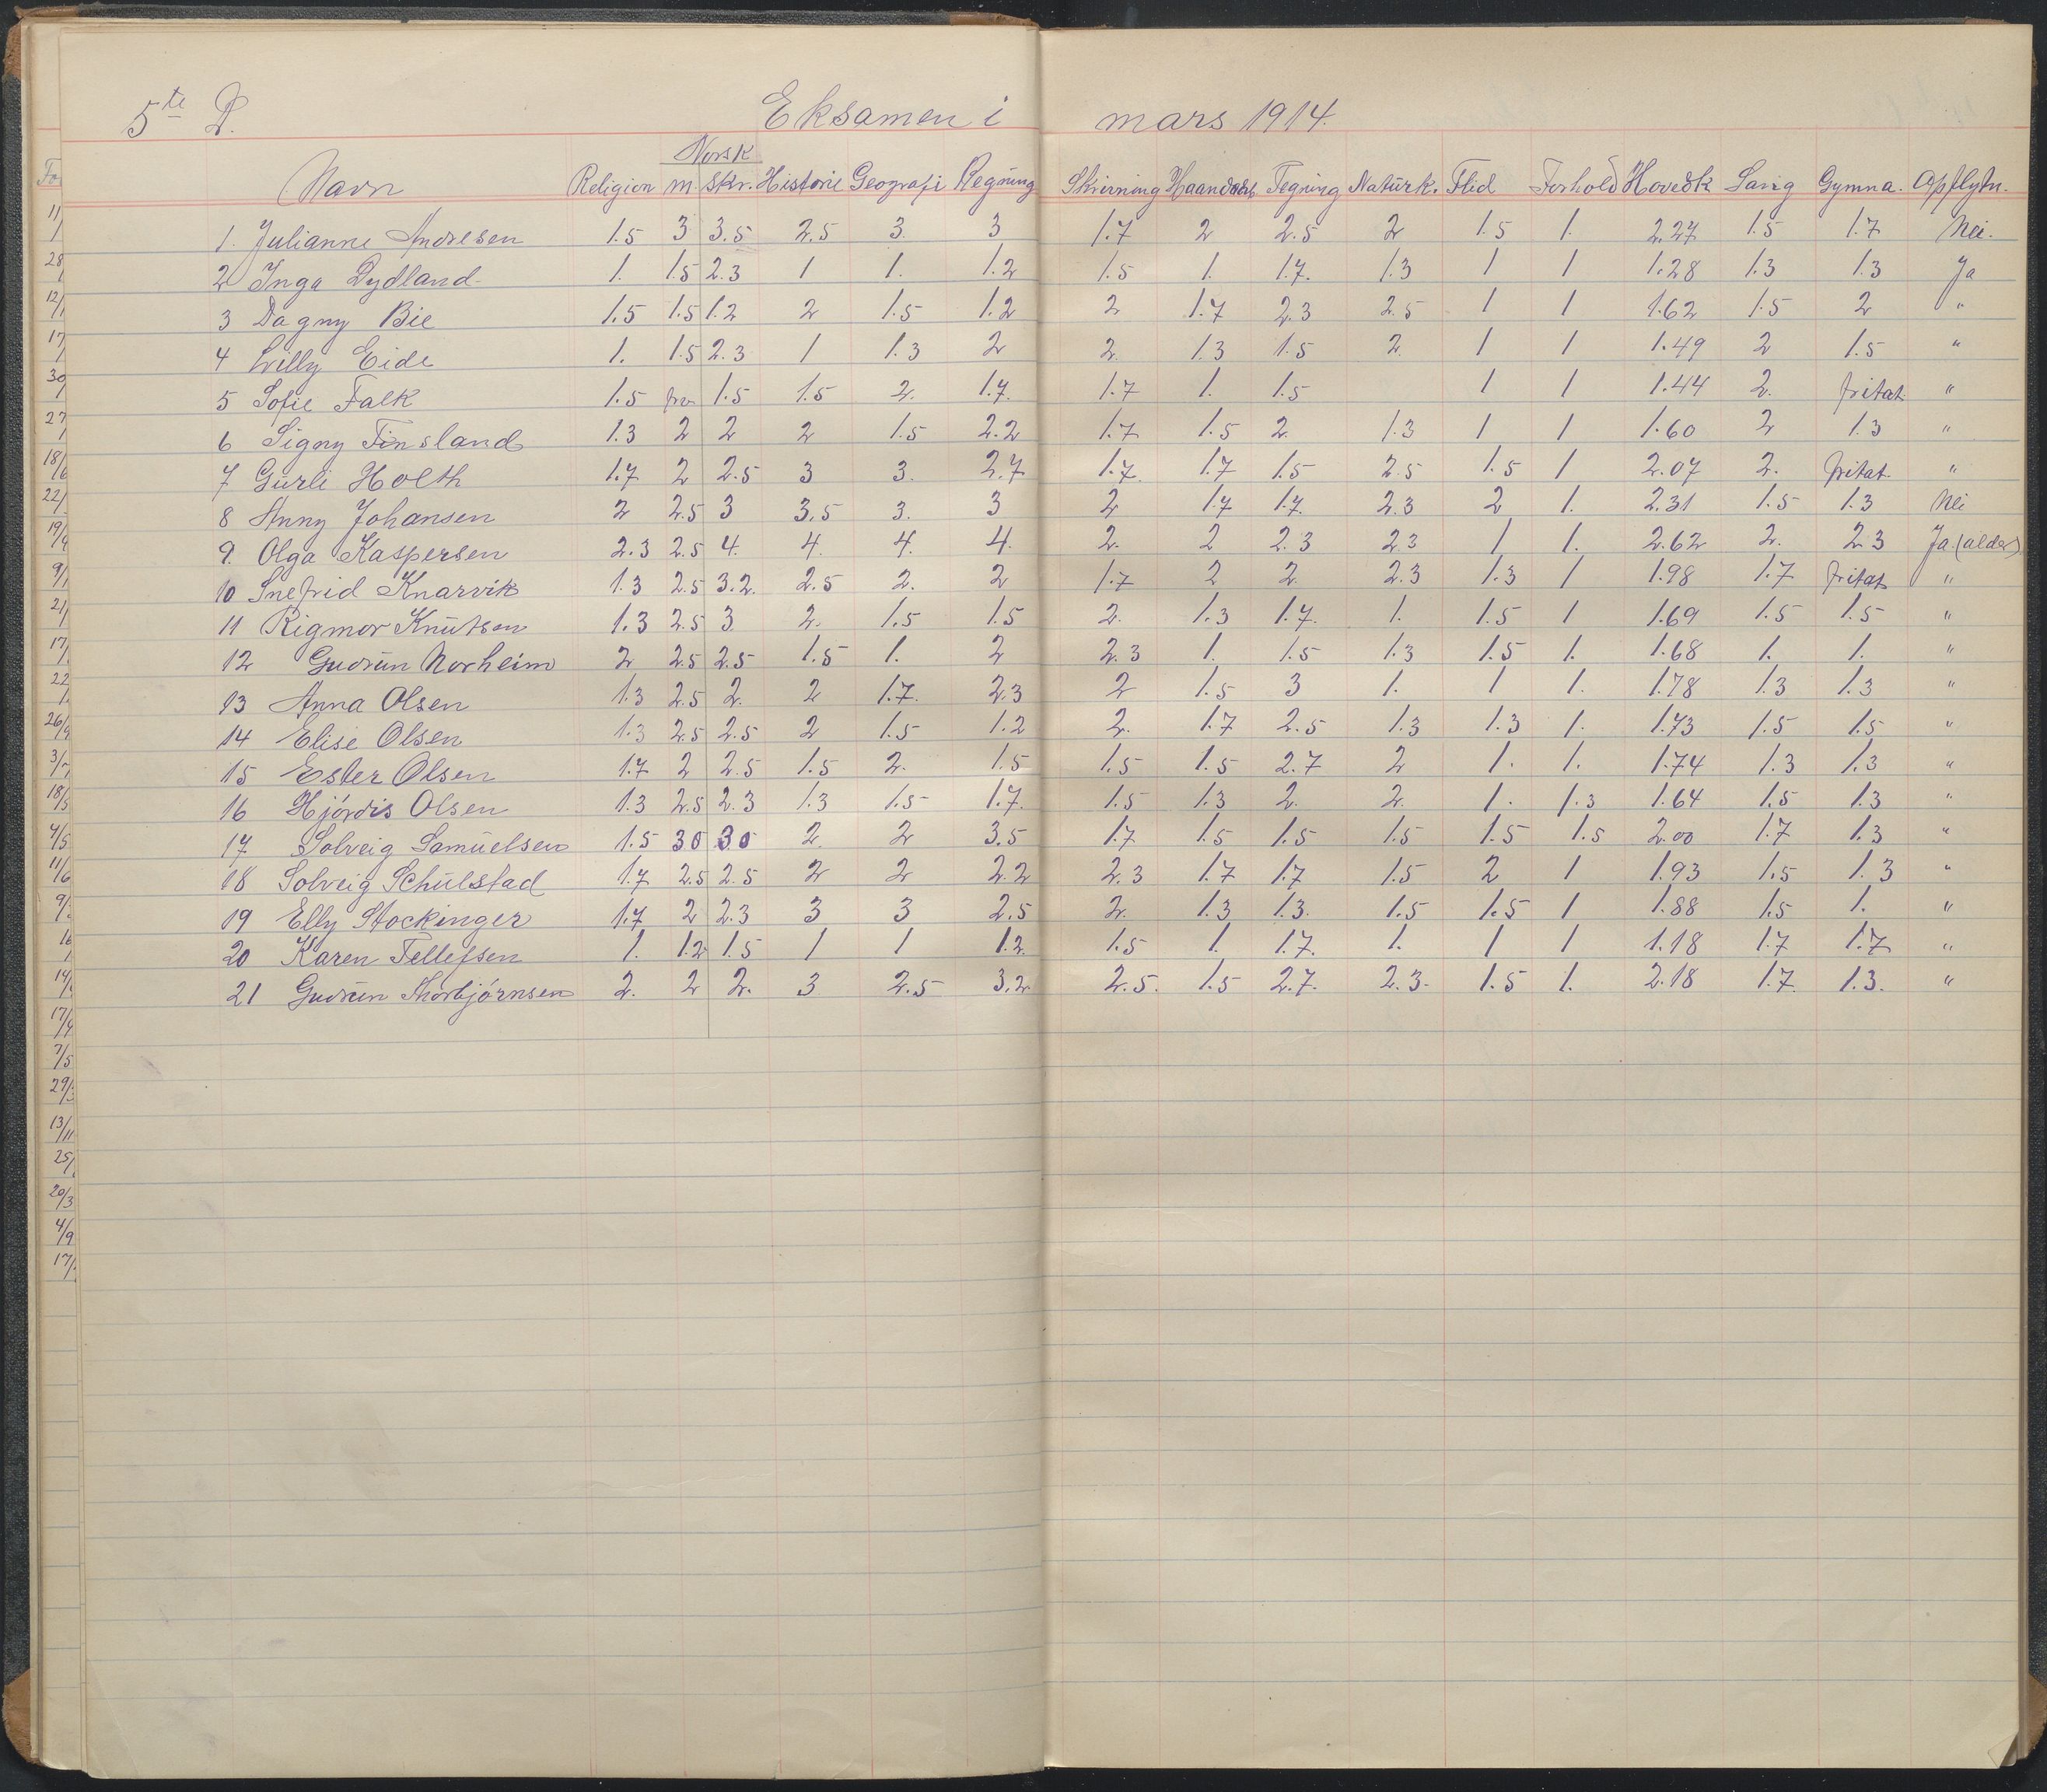 5te D. Eksamen i mars 1914.
Norsk
Navn Religion m. skr. Historie Geografi Regning Skrivning Haandarb. Tegning Naturk. Flid Forhold Hovedk Sang Gymna. Opflytn.
1. Julianne Andresen 1.5 3 3.5 2.5 3. 3 1.7 2 2.5 2 1.5 1. 2.27 1.5 1.7 Nei.
2 Inga Dydland. 1. 1.5 2.3 1 1. 1.2 1.5 1. 1.7. 1.3 1 1 1.28 1.3 1.3 Ja
3 Dagny Bie 1.5 1.5 1.2 2 1.5 1.2 2 1.7 2.3 2.5 1 1 1.62 1.5 2 "
4 Lilly Eide 1. 1.5 2.3 1 1.3 2 2. 1.3 1.5 2. 1 1 1.49 2 1.5 "
5 Sofie Falk 1.5 frv. 1.5 1.5 2. 1.7. 1.7 1. 1.5 1 1 1.44 2. fritat. "
6 Signy Finsland 1.3 2 2 2 1.5 2.2 1.7. 1.5 2. 1.3 1 1 1.60 2 1.3 "
7 Gurli Holth 1.7 2 2.5 3 3. 2.7 1.7. 1.7 1.5 2.5 1.5 1 2.07 2. fritat. "
8 Anny Johansen 2 2.5 3 3.5 3. 3 2 1.7 1.7. 2.3 2 1. 2.31 1.5 1.3 Nei
9. Olga Kaspersen 2.3 2.5 4. 4. 4. 4. 2. 2 2.3 2.3 1 1. 2.62 2. 2.3 Ja (alder)
10 Snefrid Knarvik 1.3 2.5 3.2. 2.5 2. 2 1.7 2 2. 2.3 1.3 1 1.98 1.7 fritat "
11 Rigmor Knutsen 1.3 2.5 3 2. 1.5 1.5 2. 1.3 1.7. 1. 1.5 1 1.69 1.5 1.5 "
12 Gudrun Norheim 2 2.5 2.5 1.5 1. 2 2.3 1. 1.5 1.3 1.5 1. 1.68 1. 1. "
13 Anna Olsen 1.3 2.5 2. 2 1.7. 2.3 2 1.5 3 1. 1 1. 1.78 1.3 1.3 "
14 Elise Olsen 1.3 2.5 2.5 2 1.5 1.2 2. 1.7 2.5 1.3 1.3 1. 1.73 1.5 1.5 "
15 Ester Olsen 1.7 2 2.5 1.5 2. 1.5 1.5 1.5 2.7 2 1. 1. 1.74 1.3 1.3 "
16 Hjördis Olsen 1.3 2.5 2.3 1.3 1.5 1.7. 1.5 1.3 2. 2. 1. 1.3 1.64 1.5 1.3 "
17 Solveig Samuelsen 1.5 30 3.0 2. 2 3.5 1.7 1.5 1.5 1.5 1.5 1.5 2.00 1.7 1.3 "
18 Solveig Schulstad 1.7 2.5 2.5 2 2 2.2 2.3 1.7 1.7 1.5 2 1 1.93 1.5 1.3 "
19 Elly Stockinger 1.7 2 2.3 3 3 2.5 2. 1.3 1.3. 1.5 1.5 1 1.88 1.5 1. "
20 Karen Tellefsen 1. 1.2 1.5 1 1 1.2. 1.5 1. 1.7. 1. 1 1 1.18 1.7 1.7 "
21 Gudrun Thorbjörnsen 2. 2 2. 3 2.5 3.2 2.5. 1.5 2.7. 2.3. 1.5 1. 2.18 1.7. 1.3. "